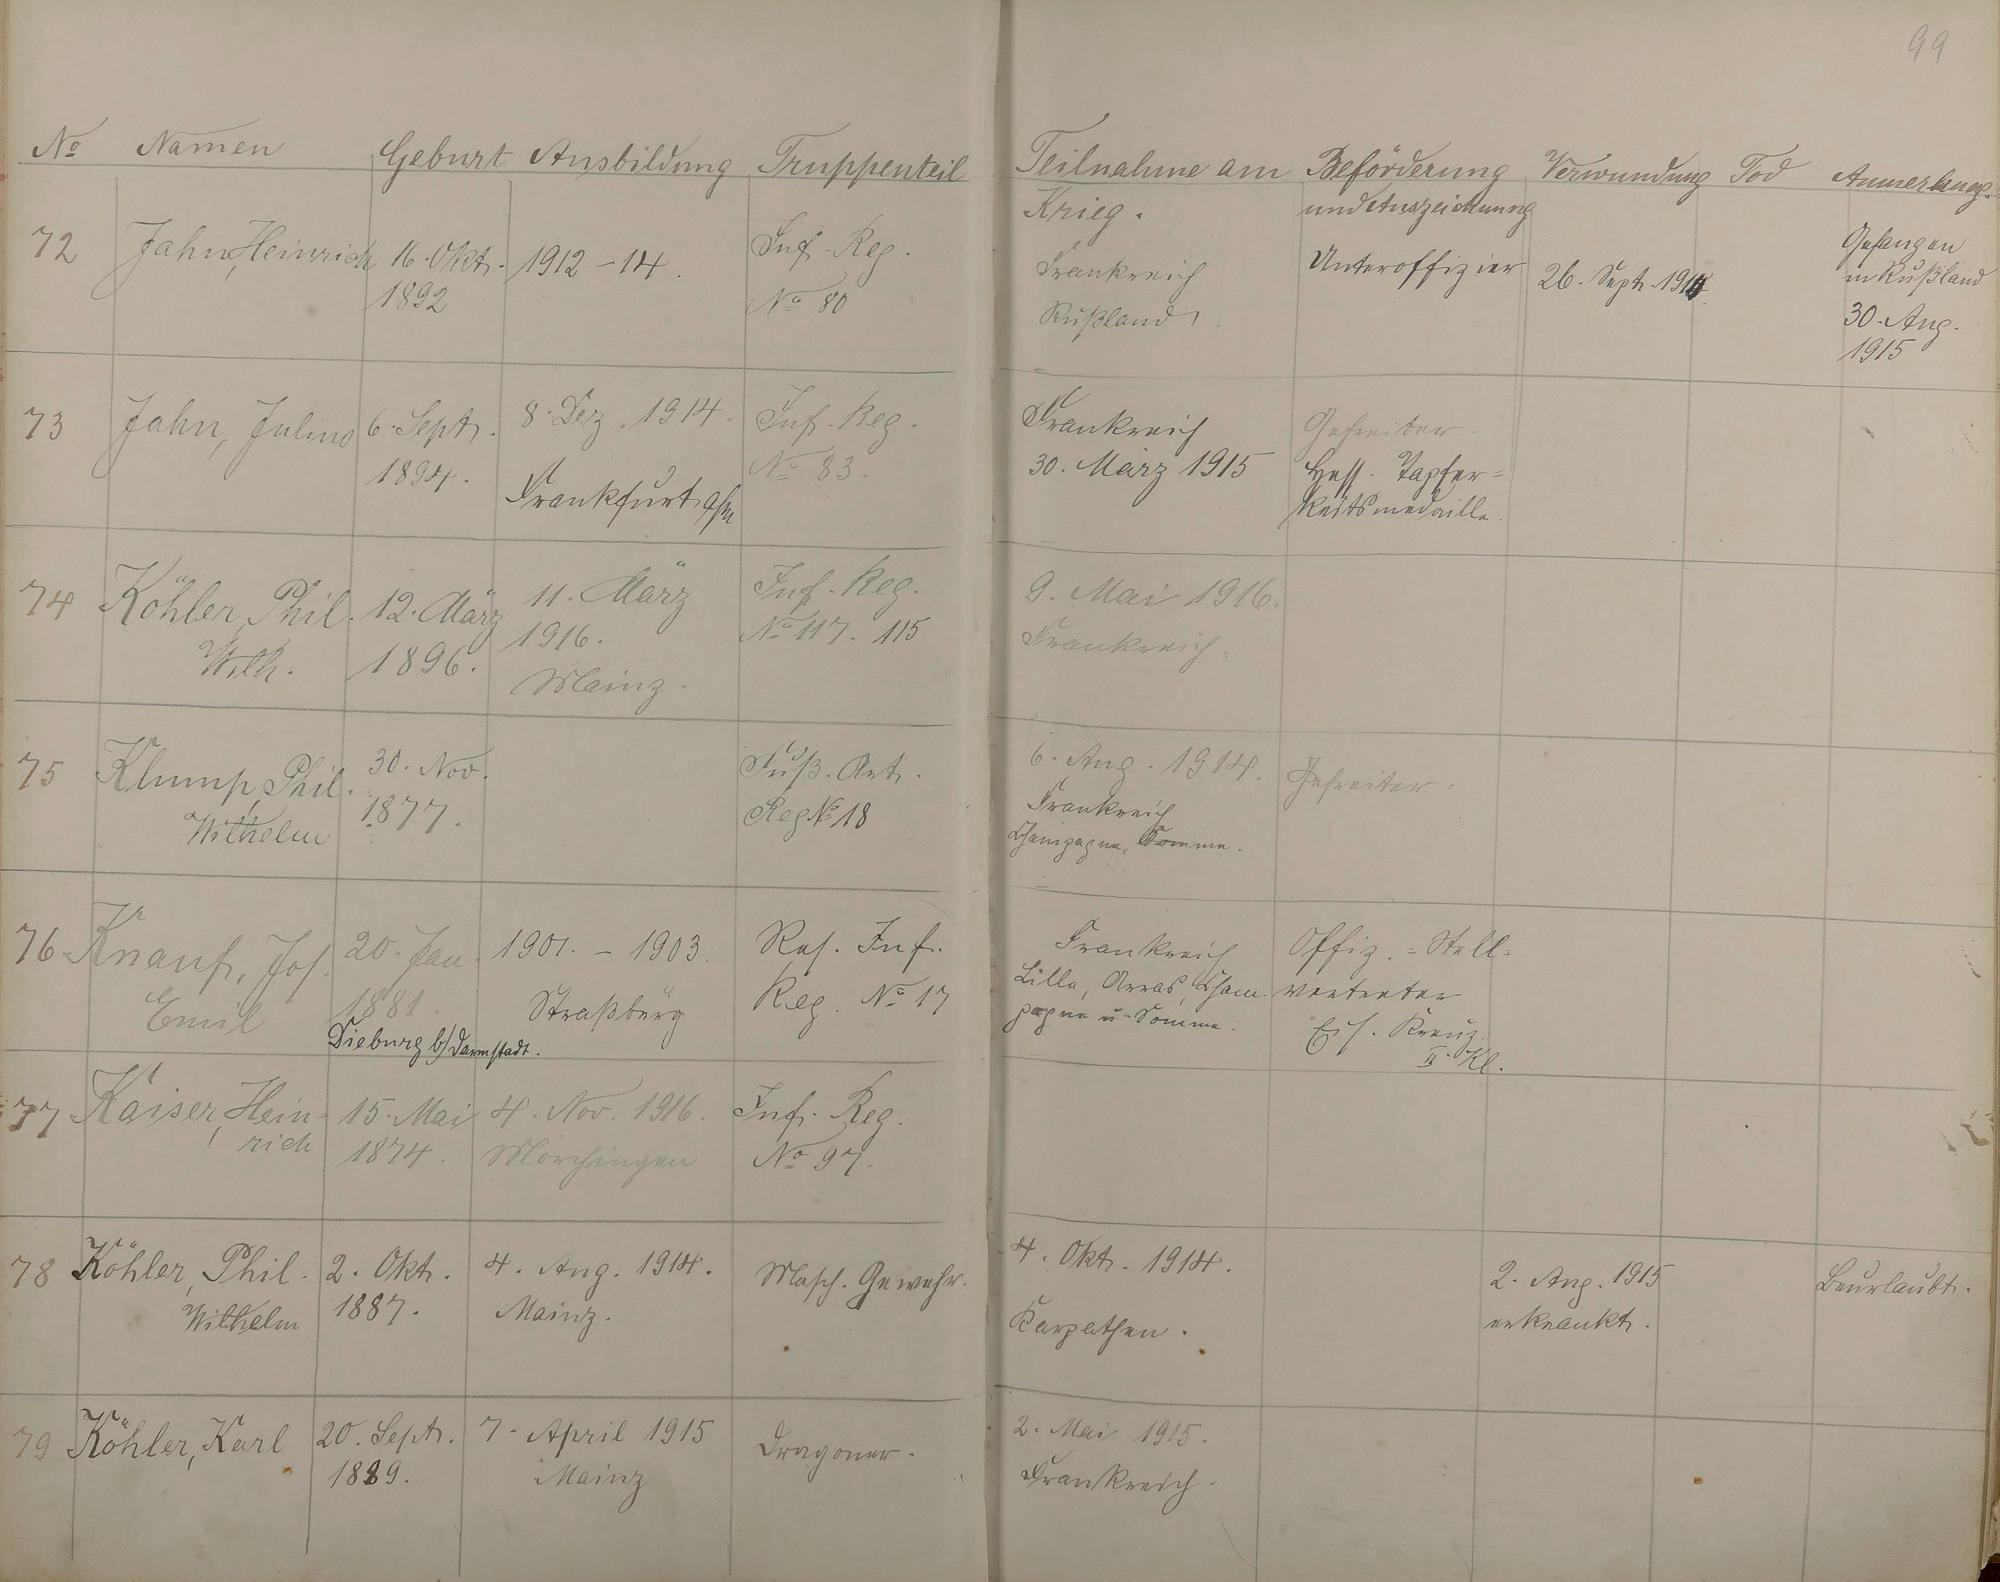 99
No Namen Geburt Ausbildung Truppenteil Teilnahme am Krieg. Beförderung und Auszeichnung Verwundung Tod Anmerkung.
72 Jahn, Heinrich 16. Okt. 1892 1912-14. Inf.-Reg. No 80 Frankreich Rußland Unteroffizier 26. Sept. 1914. Gefangen in Rußland 30. Aug. 1915
73 Jahn, Julius 6. Sept. 1894. 8. Dez. 1914. Frankfurt a/M Inf.-Reg. No 83. Frankreich 30. März 1915 Gefreiter. Hess. Tapfer=keitsmedaille.
74 Köhler, Phil. Wilh. 12. März 1896. 11. März 1916. Mainz. Inf.-Reg. No 117. 115 9. Mai 1916. Frankreich.
75 Klump, Phil. Wilhelm 30. Nov. 1877. Fuß. Art. Reg No 18 6. Aug. 1914. Frankreich Champagne, Somme. Gefreiter.
76 Knauf, Jos. Emil 20. Jan. 1881. Dieburg b/Darmstadt. 1901. - 1903. Straßburg Res. Inf. Reg. No 17 Frankreich Lille, Arras, Cham-pagne u. Somme. Offiz.=Stell=vertreter Eis. Kreuz II. Kl.
77 Kaiser, Hein=rich 15. Mai 1874. 4. Nov. 1916. Mörchingen Inf. Reg. No 97.
78 Köhler, Phil. Wilhelm 2. Okt. 1887. 4. Aug. 1914. Mainz. Masch. Gewehr. 4. Okt. 1914. Karpathen. 2. Aug. 1915 erkrankt. Beurlaubt.
79 Köhler, Karl 20. Sept. 1889. 7. April 1915 Mainz Dragoner. 2. Mai 1915. Frankreich.